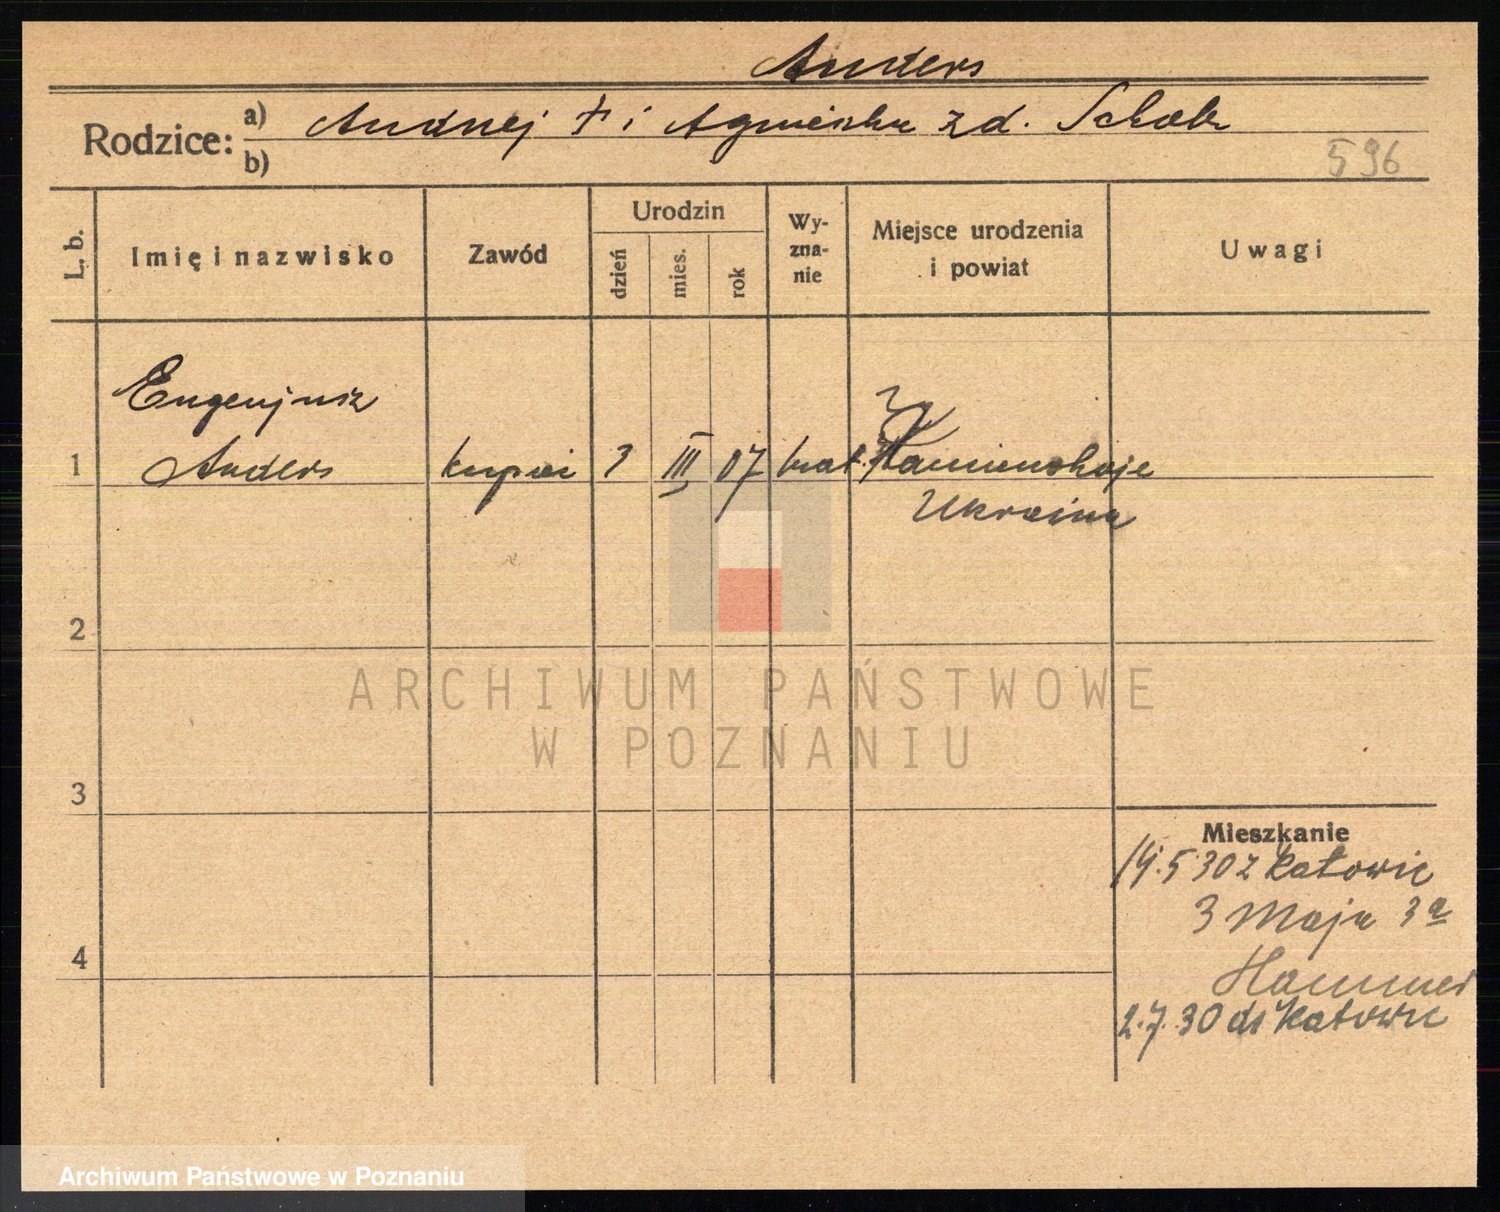 Anders
Rodzice:
a) Andrzej + i Agnieszka zd.
b)
596
L. b.
Imię i nazwisko
Zawód
Urodzin
dzień
mies.
rok
Wy-
zna-
nie
Miejsce urodzenia
i powiat
Uwagi
Eugenjusz
1 Anders kupiec 3 III 07 Kamienskoje
Ukraina
2
ARCHIWUM PAŃSTWOWE
W POZNANIU
3
Mieszkanie
14.5.30 z Katowic
3 Maja 3a
Hammer
4
2.7.30 do Katowic
Archiwum Państwowe w Poznaniu